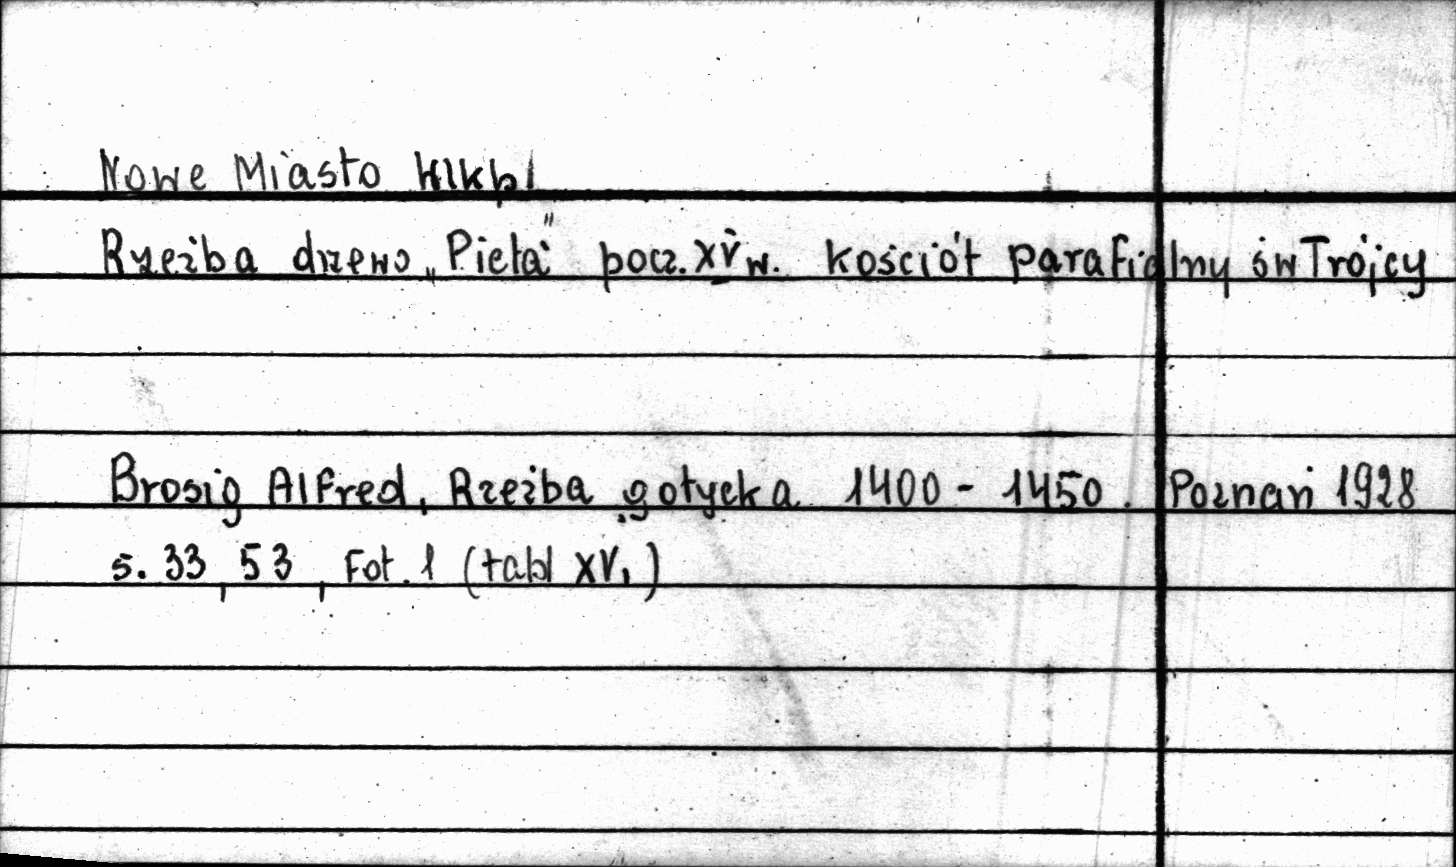 Nowe Miasto Wlkp.
Rzeźba drzewo „Pieta" pocz. XV w. kościół parafialny św Trójcy
Brosig Alfred, Rzeźba gotycka 1400 - 1450. Poznań 1928
s. 33, 53, Fot. 1 (tabl XV,)